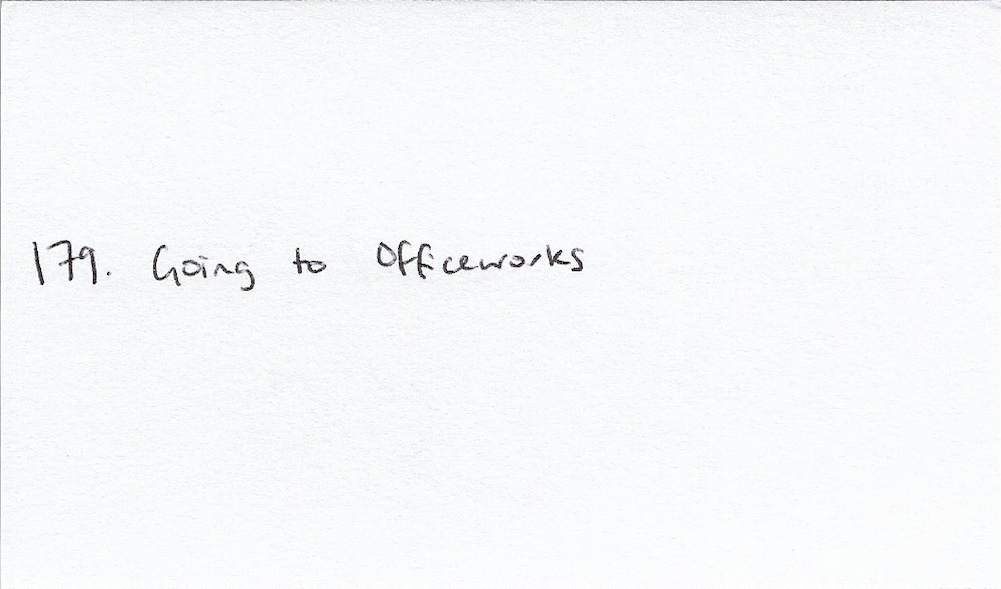 179. Going to Officeworks